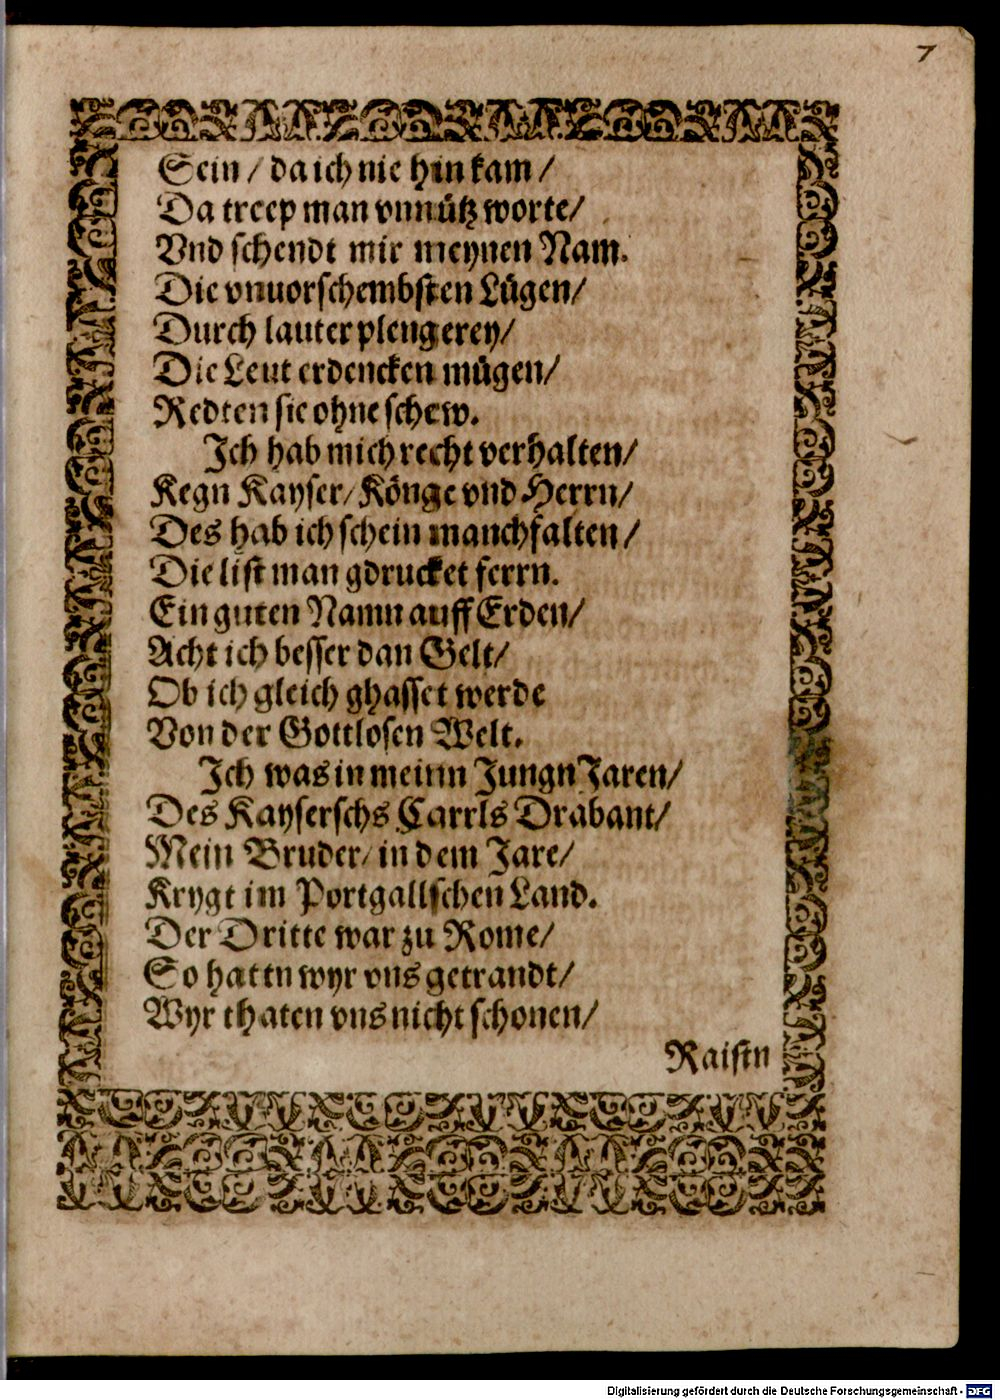 7
Sein / da ich nie hin kam /
Da treep man vnnütz worte/
Vnd schendt mir meynen Nam.
Die vnuorschembsten Lügen/
Durch lauter plengerey/
Die Leut erdencken mügen/
Redten sie ohne schew.
Ich hab mich recht verhalten/
Kegn Kayser/ Könge vnd Herrn/
Des hab ich schein manchfalten/
Die list man gdrucket ferrn.
Ein guten Namn auff Erden/
Acht ich besser dan Gelt/
Ob ich gleich ghasset werde
Von der Gottlosen Welt.
Ich was in meinn Jungn Jaren/
Des Kayserschs Carrls Drabant/
Mein Bruder/ in dem Jare/
Krygt im Portgallschen Land.
Der Dritte war zu Rome/
So hattn wyr vns getrandt/
Wyr thaten vns nicht schonen/
Raistn
Digitalisierung gefördert durch die Deutsche Forschungsgemeinschaft - DFG